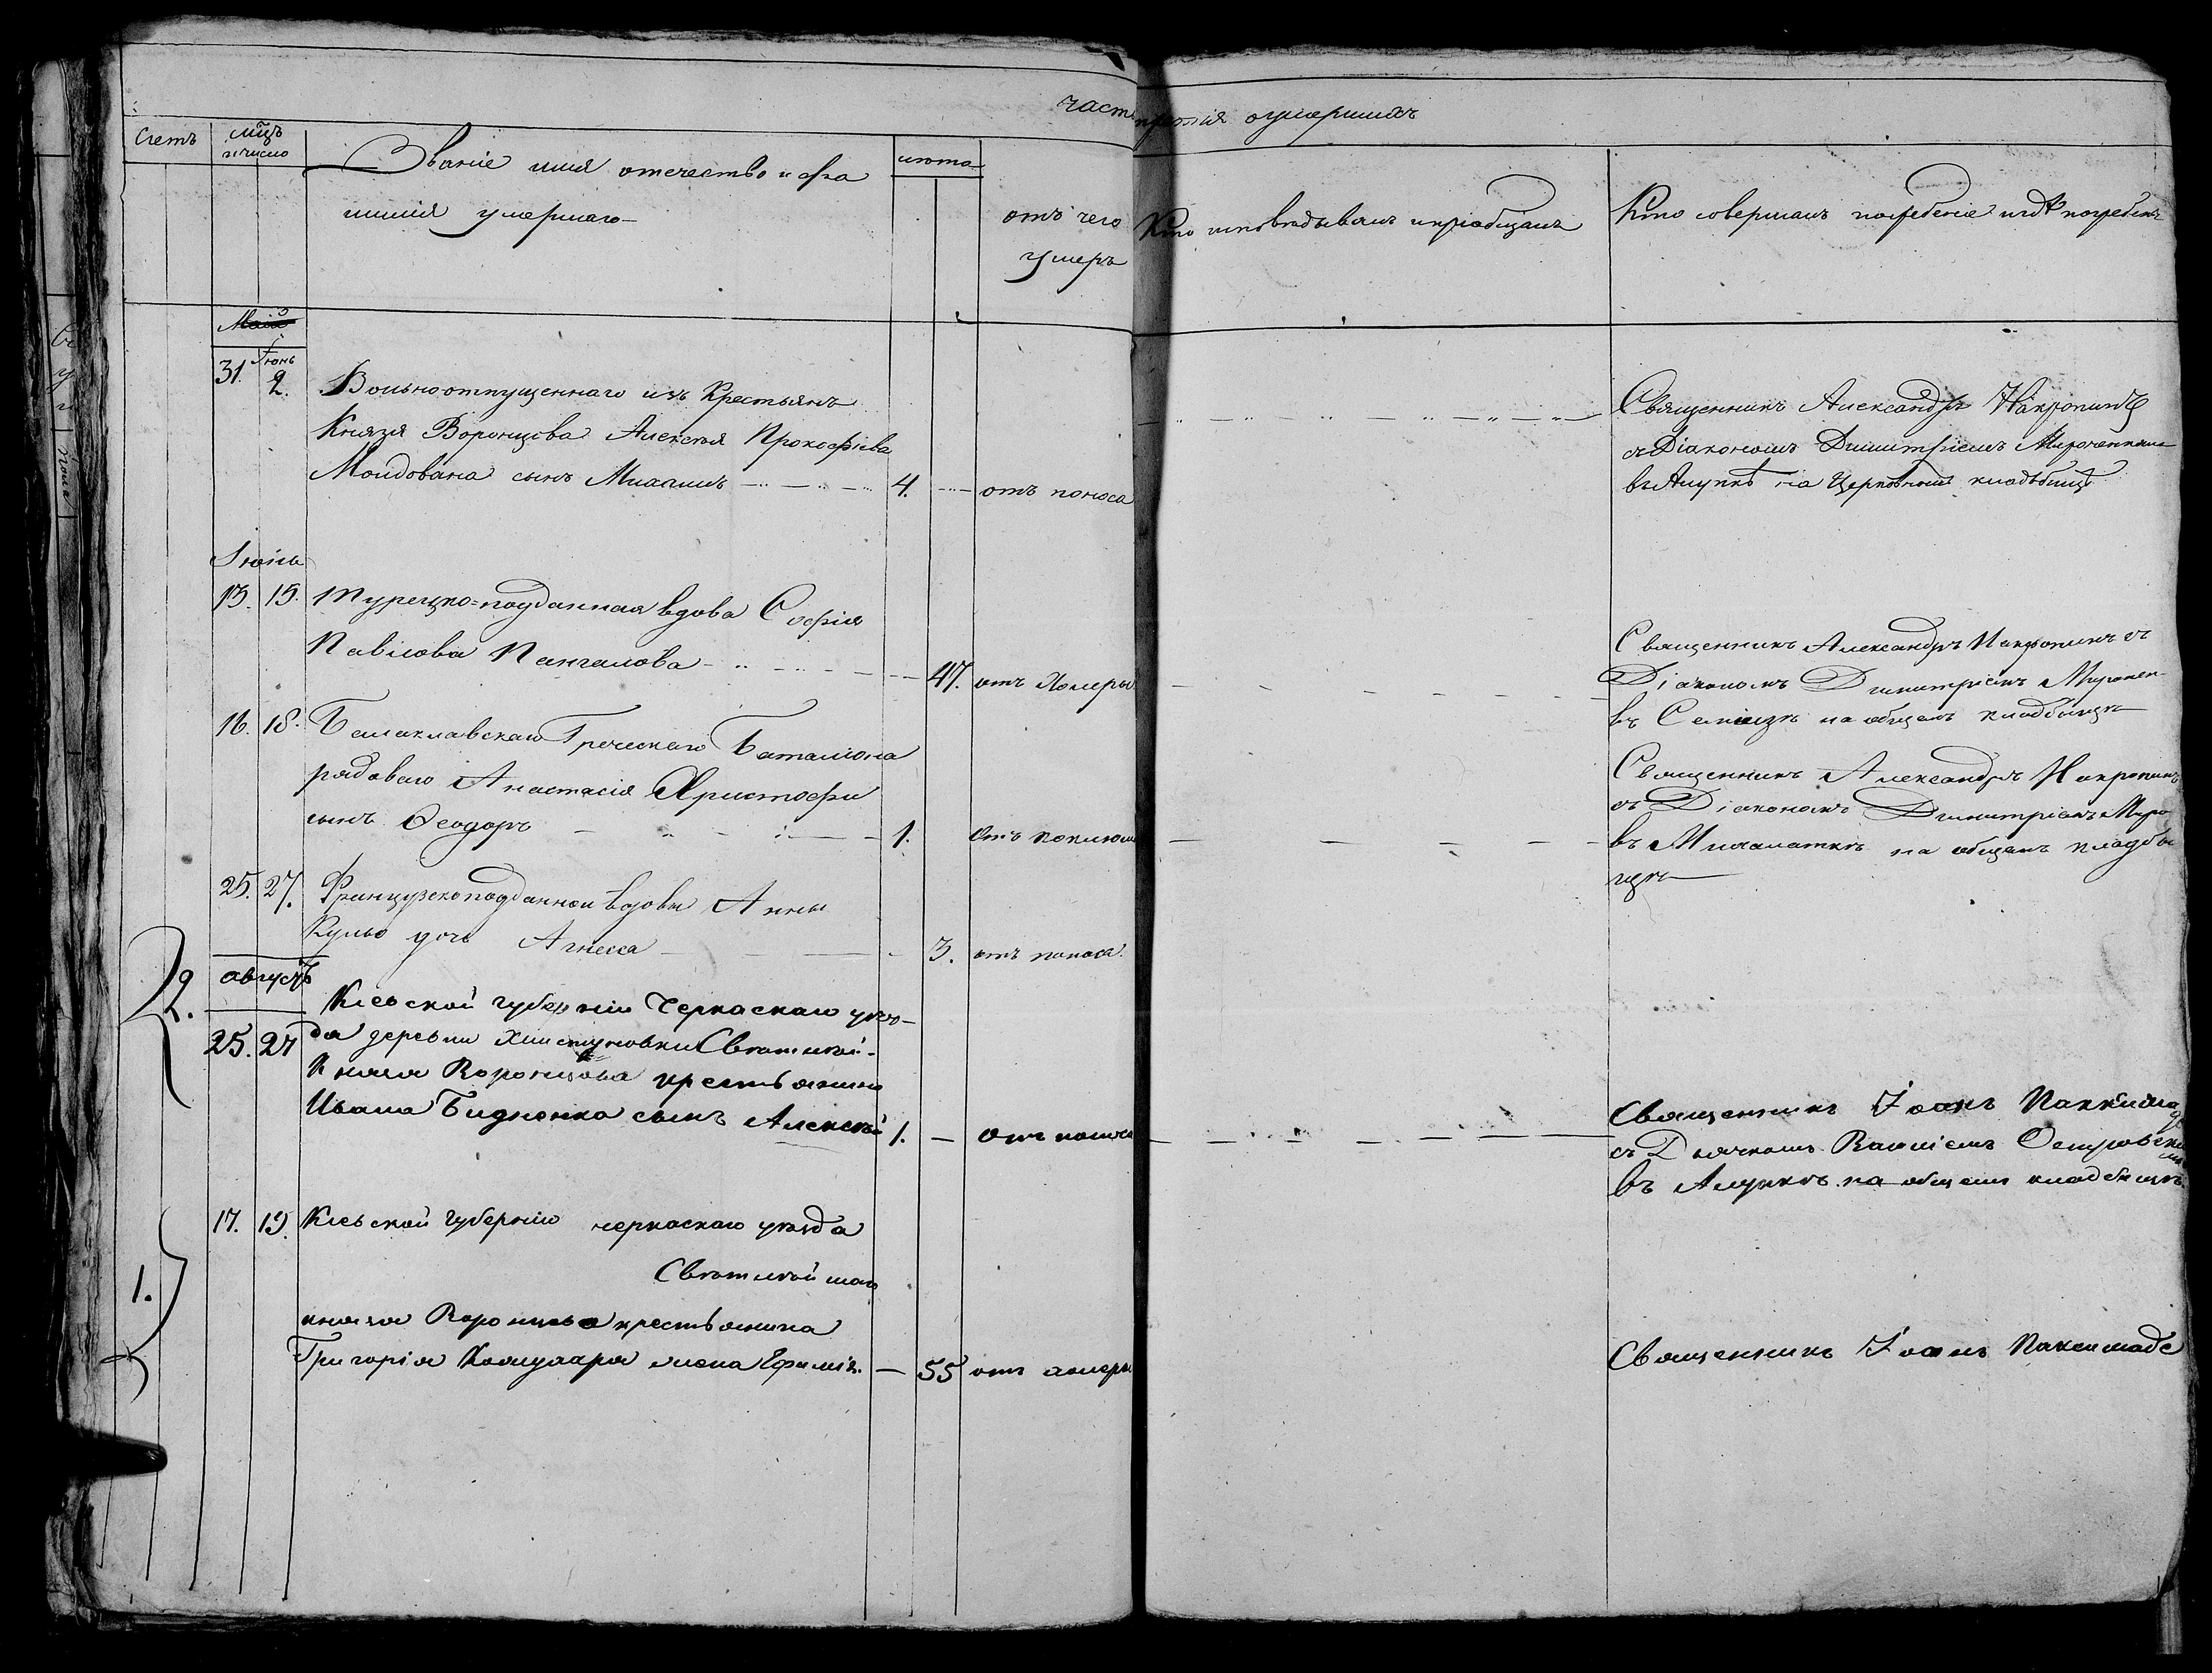 часть третія оумершихъ
Счетъ
мсцъ
и число
Званіе имя отечество и фа
милія умершаго
лѣта
отъ чего
умеръ
Кто исповѣдывалъ и пріобщалъ
Кто совершалъ погребеніе и гдѣ погребенъ
Май
31.
Іюнь
2.
Вольноотпущеннаго изъ Крестьянъ
Князя Воронцова Алексѣя Прокофіева
Молдована сынъ Михаилъ
4.
отъ поноса
Священникъ Александръ
съ Діакономъ Димитріемъ
въ Алупкѣ на Церковномъ кладбищѣ
Іюнь
13. 15.
Турецко=подданная вдова Софія
Павлова Пангалова
47.
отъ Холеры
Священникъ Александръ съ
Діакономъ Димитріемъ
въ на общемъ кладбищѣ
16. 18.
Балаклавскаго Греческаго Баталіона
рядоваго Анастасія Христофи
сынъ Ѳеодоръ
1.
Отъ коклюш
Священникъ Александръ
съ Діакономъ Димитріемъ
въ Мисхалаткѣ на общемъ кладби
щѣ
25. 27.
Французскоподданной вдовы Анны
Кулью дочь Агнесса
3.
отъ поноса.
2.
августъ
25. 27
Кіевской губерніи Черкаскаго уѣз-
да деревни Свѣтлѣй-
Князя Воронцова крестьянина
Ивана Бидненка сынъ Алексѣй
1.
Отъ
Священникъ Іоаннъ
съ Дьячкомъ
въ Алупкѣ на общемъ кладбищѣ.
1.
17. 19.
Кіевской Губерніи черкаскаго уѣзда
Свѣтлѣйшаго
князя Воронцова крестьянина
Григорія жена Ефимія.
55
отъ холеры
Священникъ Іоаннъ